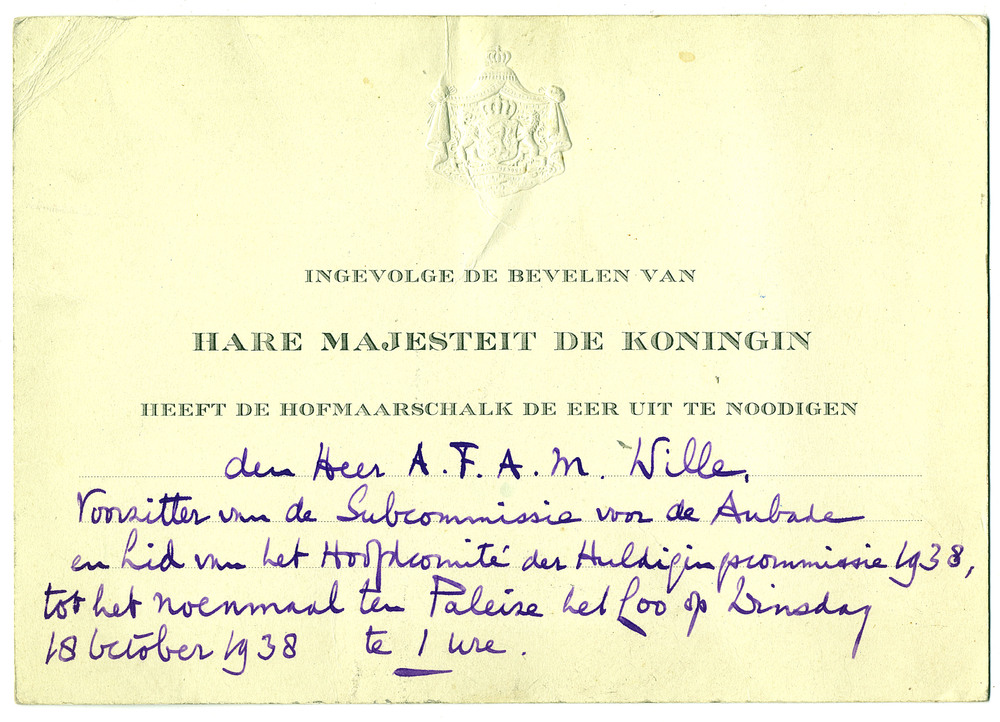 INGEVOLGE DE BEVELEN VAN
HARE MAJESTEIT DE KONINGIN
HEEFT DE HOFMAARSCHALK DE EER UIT TE NOODIGEN
den Heer A. F. A. M. Wille,
Voorzitter van de Subcommissie voor de Aubade
en Lid van het Hoofdcomité der Huldigingscommissie 1938,
tot het noenmaal ten Paleize het Loo op Dinsdag
18 October 1938 te 1 ure.